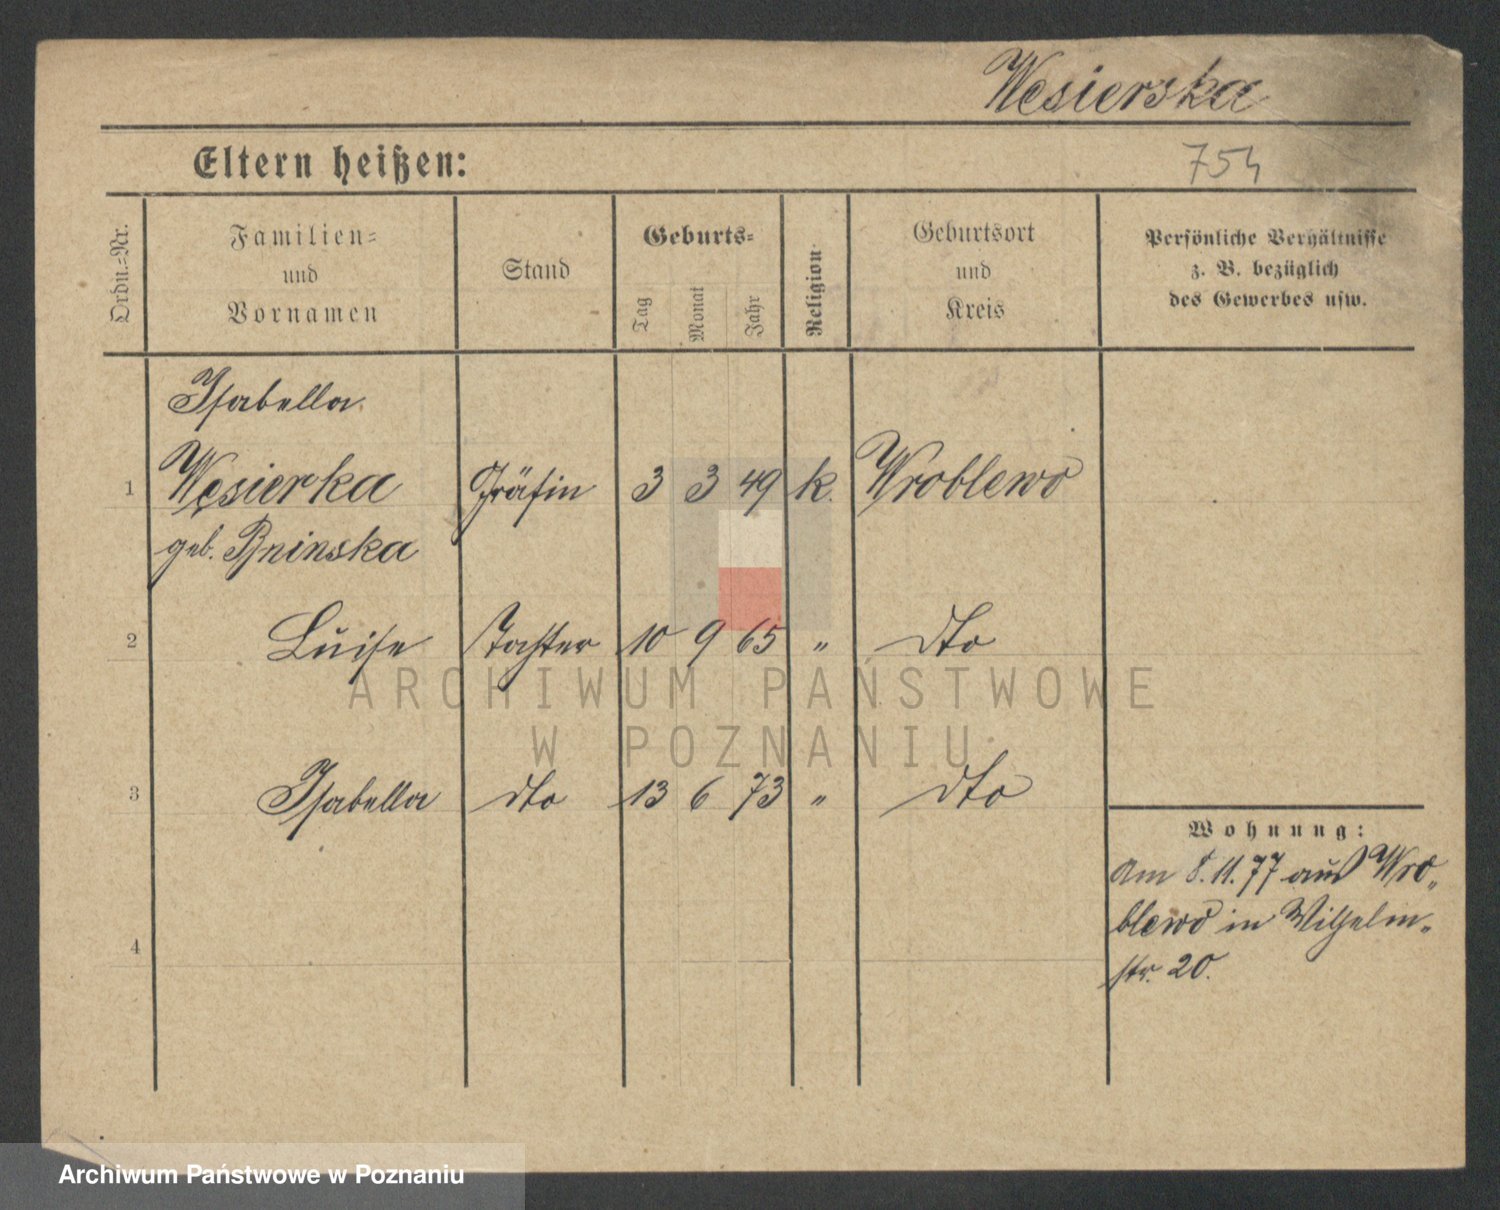 Wesierska
Eltern heißen:
754
Ordn.-Nr.
Familien-
und
Vornamen
Stand
Geburts-
Tag
Monat
Jahr
Religion
Geburtsort
und
Kreis
Persönliche Verhältnisse
z. B. bezüglich
des Gewerbes usw.
Isabella
1 Węsierka Gräfin 3 3 49 k. Wroblewo
geb. Bninska
2 Luise Tochter 10 9 65 " dto
3 Isabella dto 13 6 73 " dto
Wohnung:
Am 8.11.77 aus Wro„
blewo in Wilhelm„
str. 20.
4
ARCHIWUM PAŃSTWOWE
W POZNANIU
Archiwum Państwowe w Poznaniu